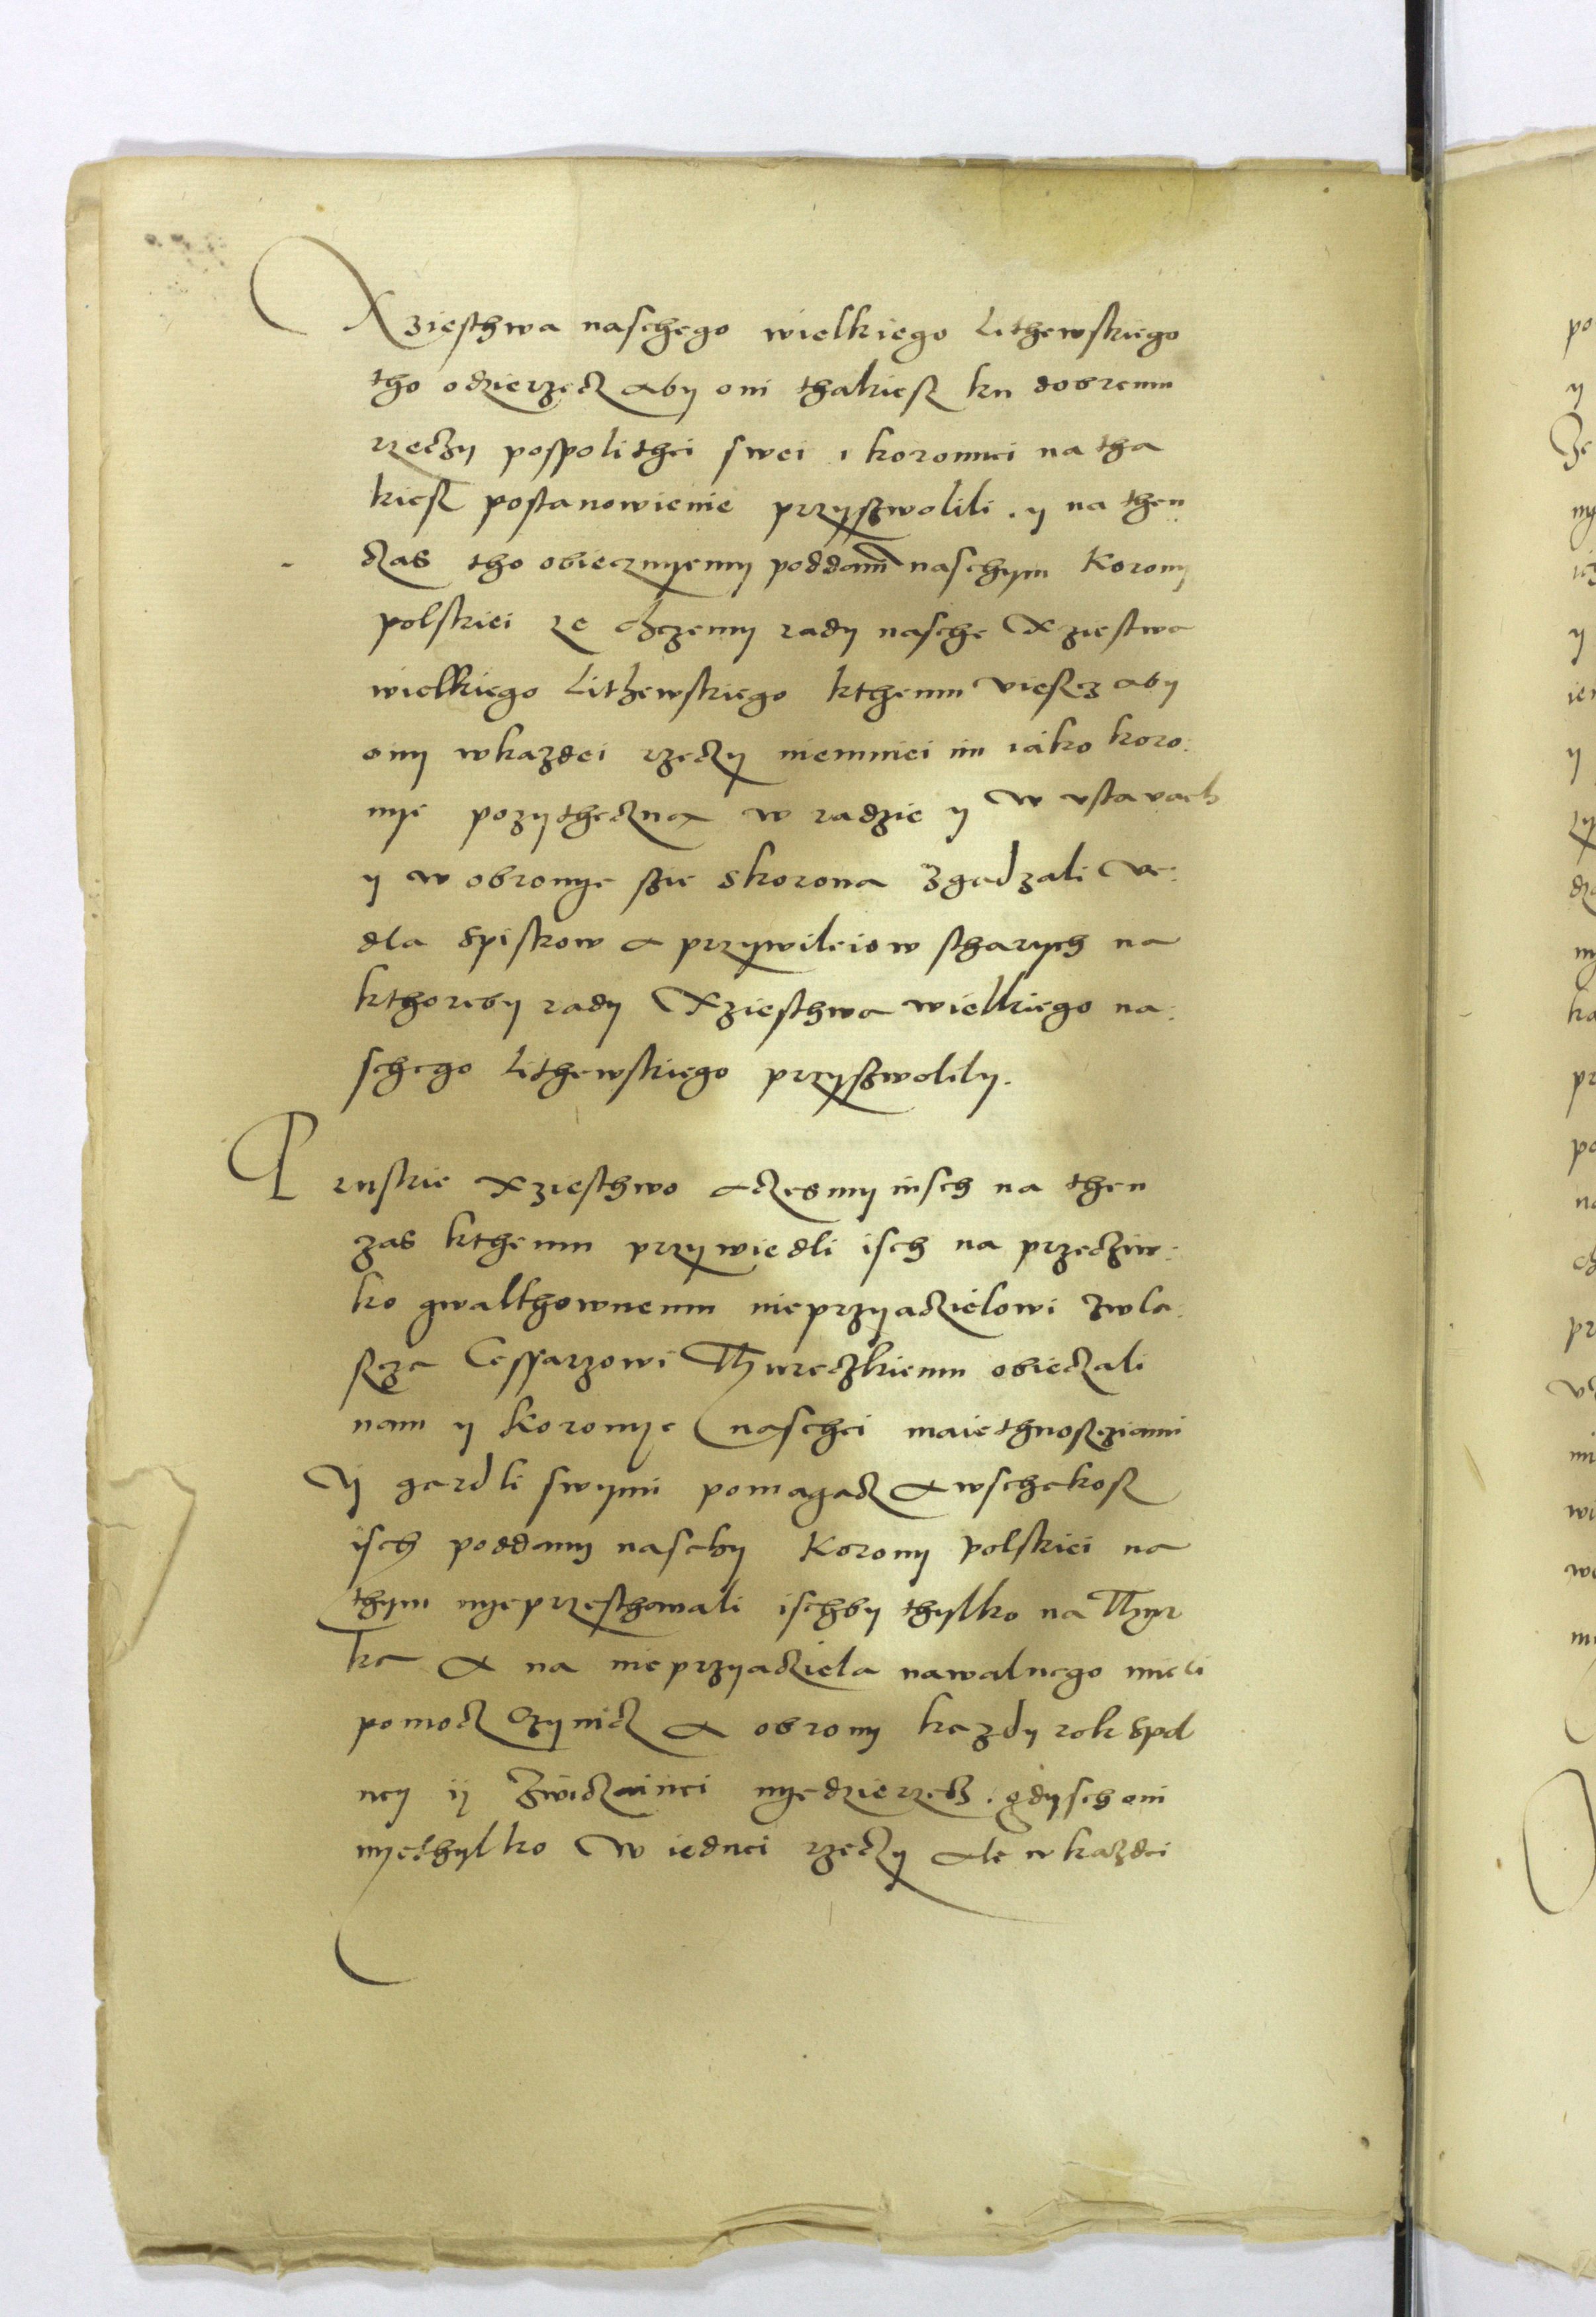 Xziesthwa naschego wielkiego Lithewskiego
tho odzierzecz aby oni thakiesz ku dobremu
rzeczy pospolithei swei i koronnei na tha
kiesz postanowienie przyszwolili. y na then
czas tho obiecznyemy poddam naschym Korony
polskiei ze chczemy rady nasche Xziestwa
wielkiego Lithewskiego kthemu viescz aby
ony wkazdei rzeczy niemniei im iako koro:
nye pozytheczna w radzie y w vstavach
y w obronye szie skorona zgadzali ve:
dla spiskow a przywileiow stharych na
kthoreby rady Xziesthwa wielkiego na:
schego Lithewskiego przyszwolily.
Pruskie Xziesthwo aczesmy insch na then
zas kthemu przywiedli isch na przecziw:
ko gwalthownemu nieprzyaczielowi zwla:
szcza Cessarzowi Thureczkiemu obieczali
nam y Koronye naschei maiethnoscziami
y gardli swymi pomagacz a wschakosz
isch poddany naschy Korony polskiei na
thym nyeprzesthawali ischby thylko na Thur
ka a na nieprzyacziela nawalnego mieli
pomocz czynicz a obrony kazdy rok spol
ney y zwiczainei myedzierzecz. gdysch oni
nyethylko w iednei rzeczy ale w kazdei